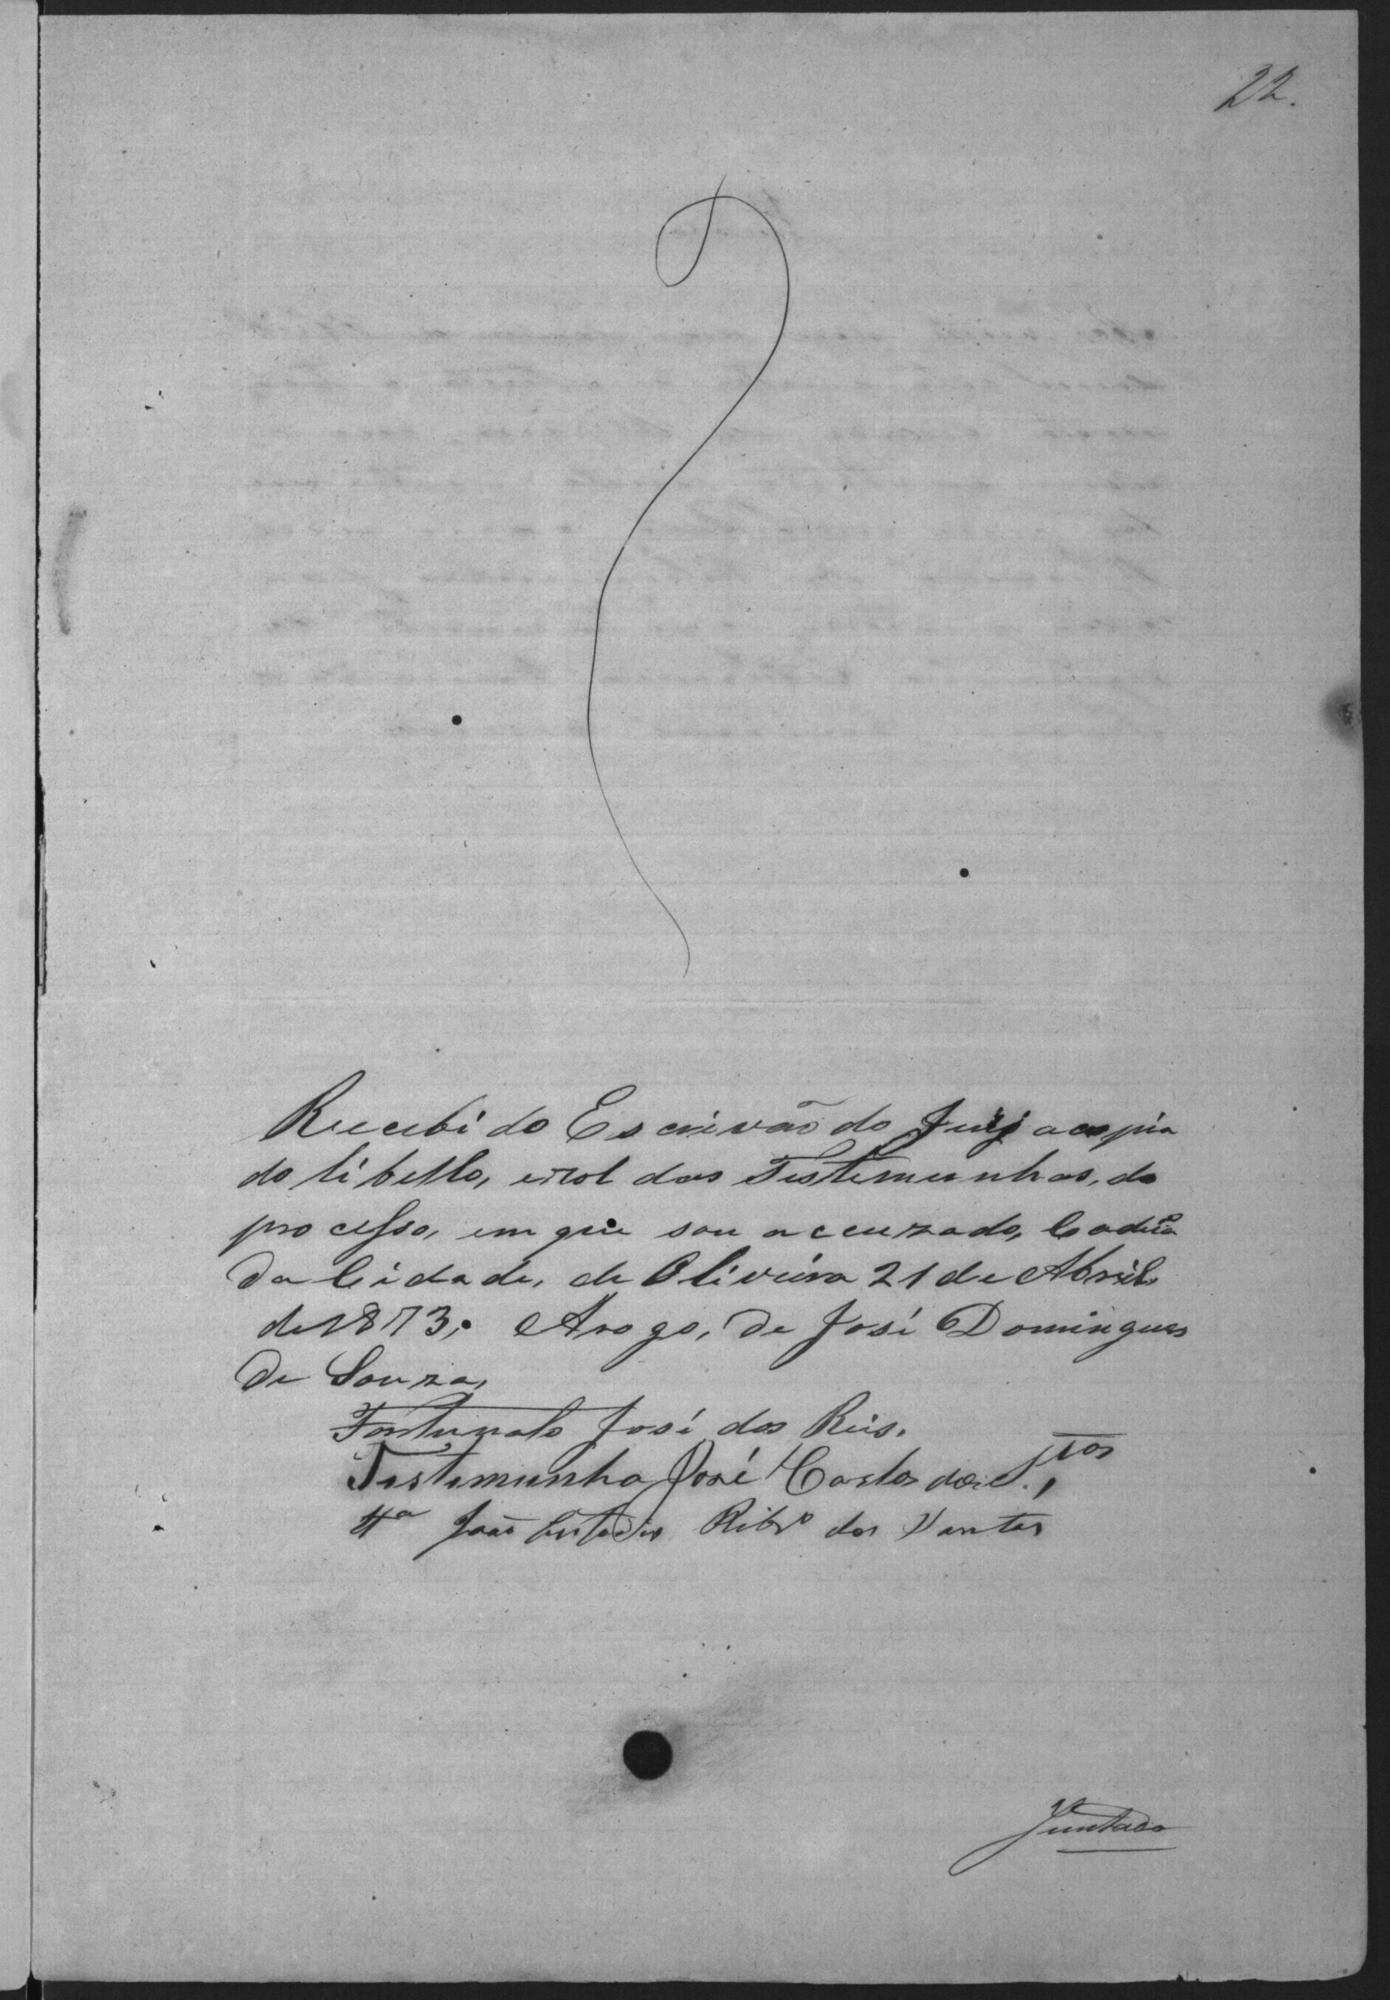 22.
Recebi do Escrivão do Jury a copia
do libello, e rol das Testemunhas, do
processo, em que sou accuzado, Cadêa
da Cidade, de Oliveira 21 de Abril
de 1873. Arogo, de José Domingues
de Souza,
Fortunato José dos Reis.
Testemunha José Carlos dos S.tos,
Tª João Custodio Ribrº dos Santos
Juntada